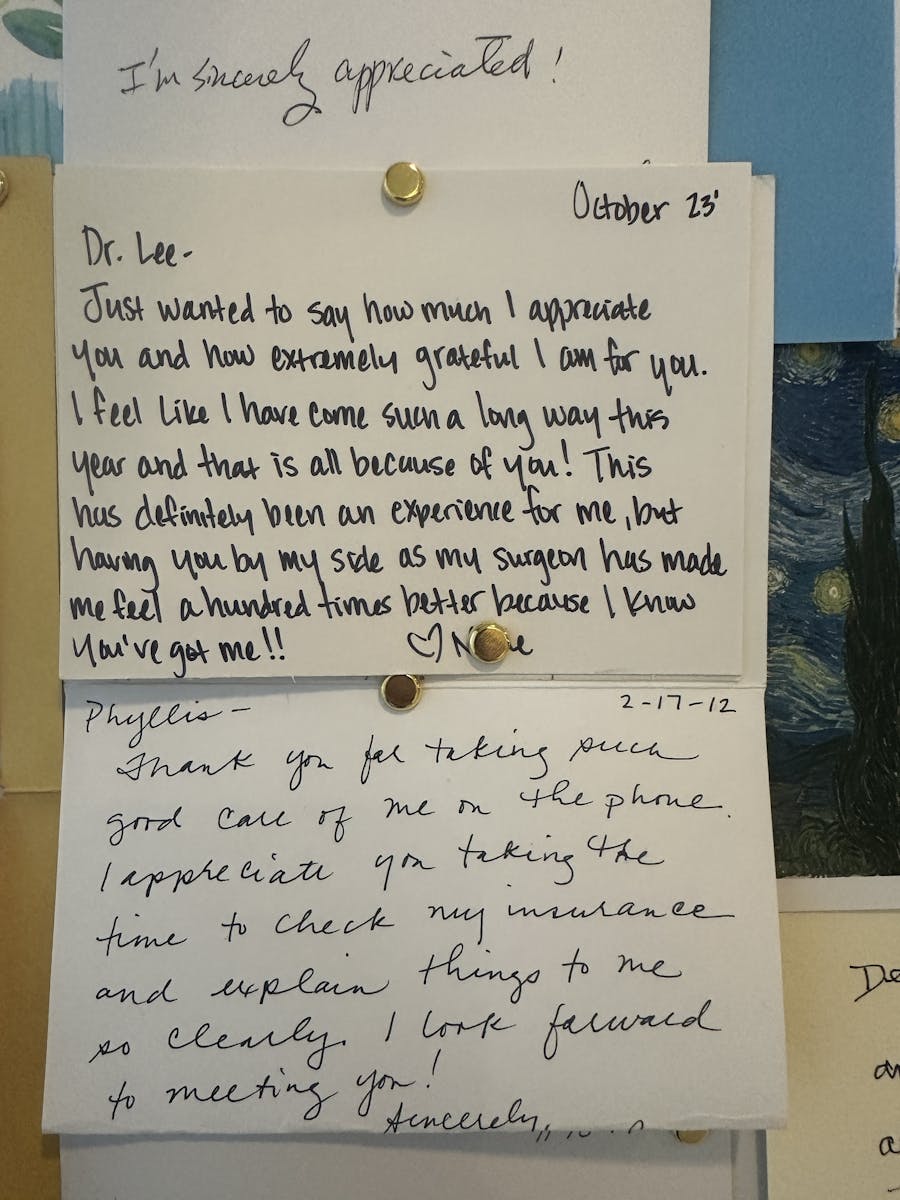 I'm sincerely appreciated!
October 23'
Dr. Lee-
Just wanted to say how much I appreciate
you and how extremely grateful I am for you.
I feel like I have come such a long way this
year and that is all because of you! This
has definitely been an experience for me, but
having you by my side as my surgeon has made
me feel a hundred times better because I know
you've got me!!
Phyllis-
2-17-12
Thank you for taking such
good care of me on the phone.
I appreciate you taking the
time to check my insurance
and explain things to me
so clearly. I look forward
to meeting you!
Sincerely,